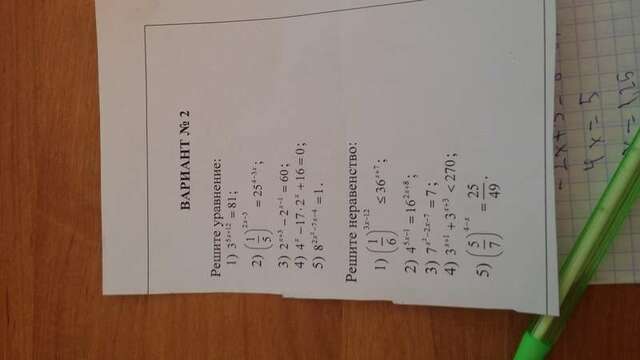 ВАРИАНТ № 2
Решите уравнение:
1) 3^{5x+12} = 81;
2) (1/5)^{2x-3} = 25^{4-3x};
3) 2^{x+3} − 2^{x-1} = 60;
4) 4^x − 17·2^x + 16 = 0;
5) 8^{2x²-5x-4} = 1.
Решите неравенство:
1) (1/6)^{3x-12} ≤ 36^{x+7};
2) 4^{5x-1} = 16^{2x+8};
3) 7^{x²-2x-7} = 7;
4) 3^{x+1} + 3^{x+3} < 270;
5) (5/7)^{4-x} = 25/49.
4x = 5